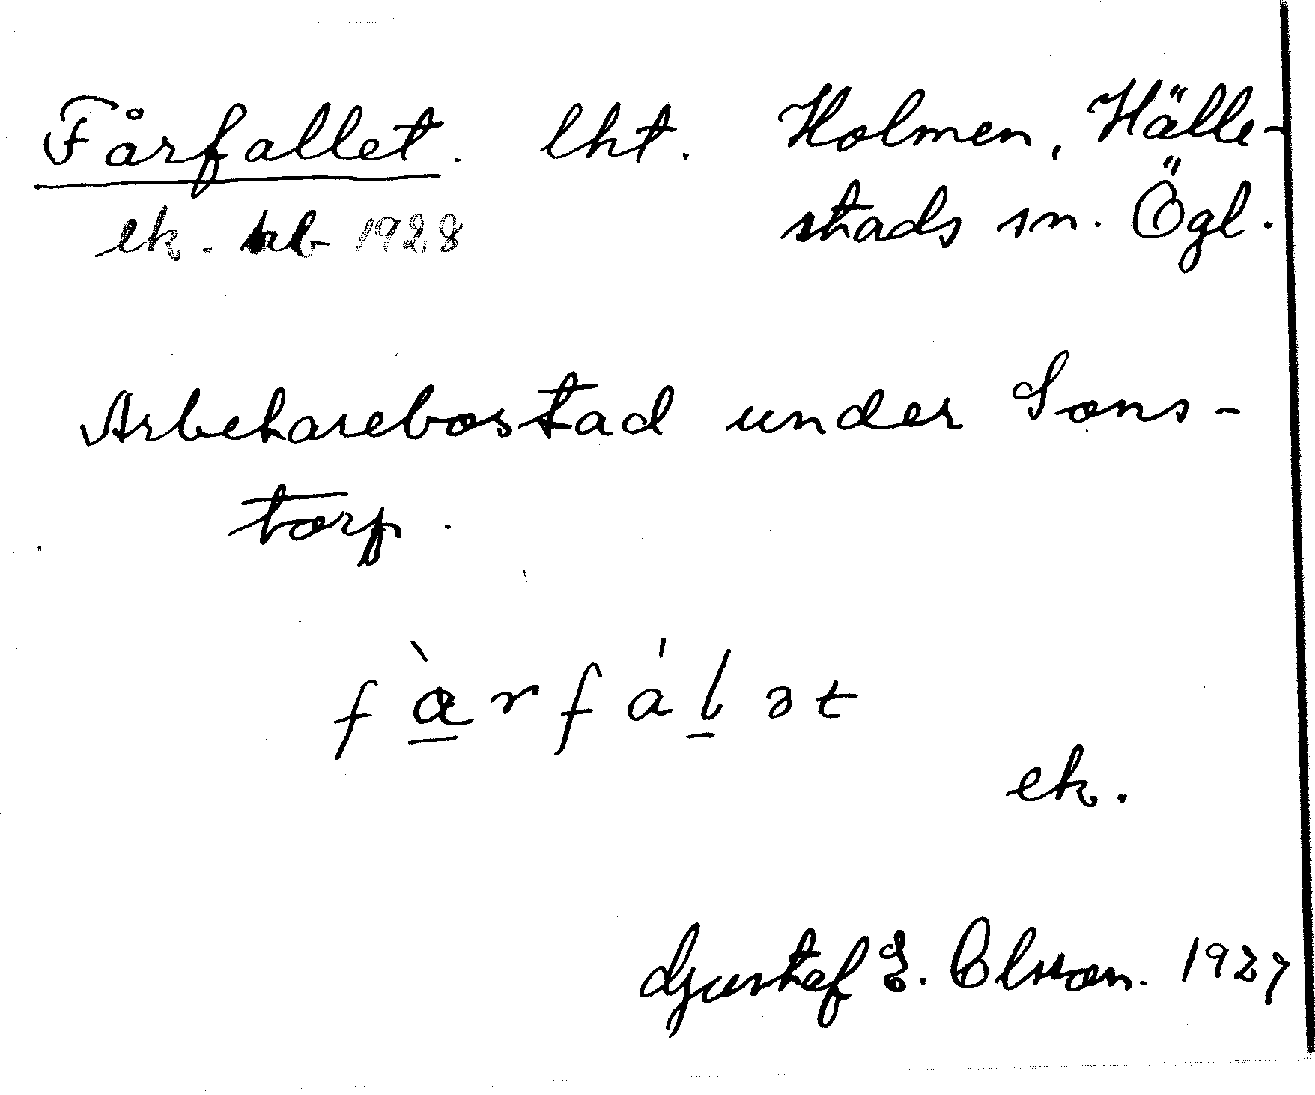 Fårfallet. lht. Holmen, Hälle-
ek. kb 1928 stads sn. Ögl.
Arbetarebostad under Sons-
torp.
fàrfálət
ek.
Gustaf E. Olsson. 1927